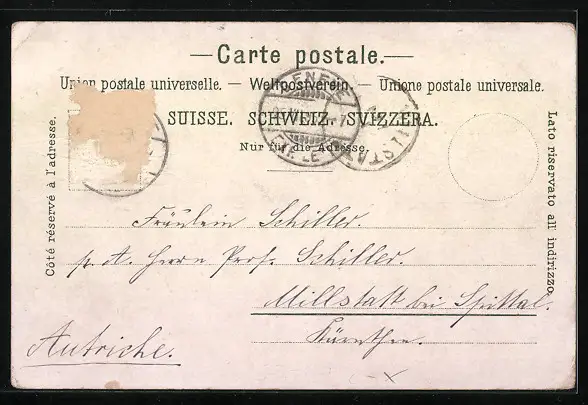 — Carte postale. —
Union postale universelle. — Weltpostverein. — Unione postale universale.
SUISSE. SCHWEIZ. SVIZZERA.
Nur für die Adresse.
Côté réservé à l'adresse.
Lato riservato all' indirizzo.
GENEVE
MILLSTATT
Fräulein Schiller.
p. A. Herrn Prof. Schiller.
Millstatt bei Spittal.
Kärnthen.
Autriche.